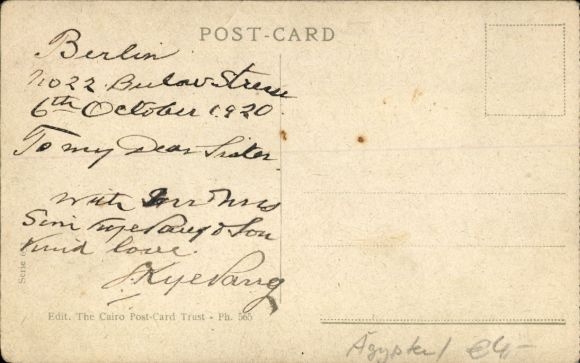 POST-CARD
Berlin
No 22 Bulow Strasse
6th October 1920.
To my Dear Sister
With Mr & Mrs
Simi Kye Pang & Son
Kind love.
S. Kye Pang
Serie
Edit. The Cairo Post-Card Trust - Ph. 565
Ägypten / €4-